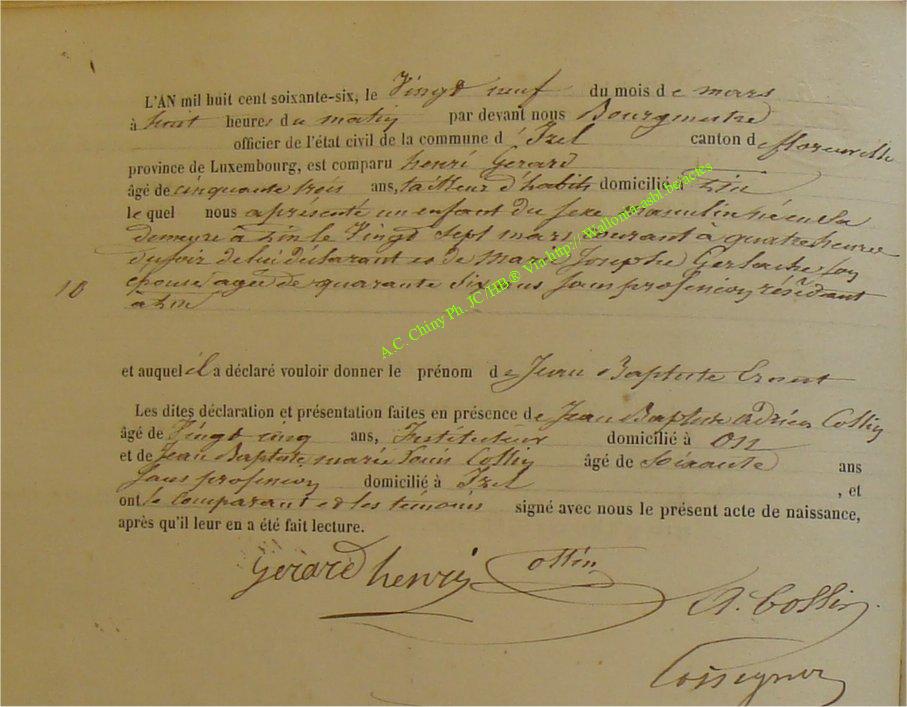 L'AN mil huit cent soixante-six, le Vingt neuf du mois de mars
à huit heures du matin par devant nous Bourgmestre
officier de l'état civil de la commune d'Izel canton de florenville
province de Luxembourg, est comparu henri Gerard
âgé de cinquante trois ans, tailleur d'habits domicilié à
le quel nous a présenté un enfant du sexe masculin né en sa
demeure à le Vingt Sept mars courant à quatre heures
du soir de lui déclarant et de Marie Josephe Gerlache son
épouse agée de quarante Six ans Sans profession résidant
10
à
et auquel il a déclaré vouloir donner le prénom de Jean Baptiste Ernest
Les dites déclaration et présentation faites en présence de Jean Baptiste Adrien Collin
âgé de Vingt cinq ans, Instituteur domicilié à
et de Jean Baptiste marie Louis Collin âgé de Soixante ans
Sans profession domicilié à Izel , et
ont le Comparant et les témoins signé avec nous le présent acte de naissance,
après qu'il leur en a été fait lecture.
Gérard henry Collin
A. Collin
A.C. Chiny Ph. JC/HB® Via http://Wallonia-asbl.be/actes